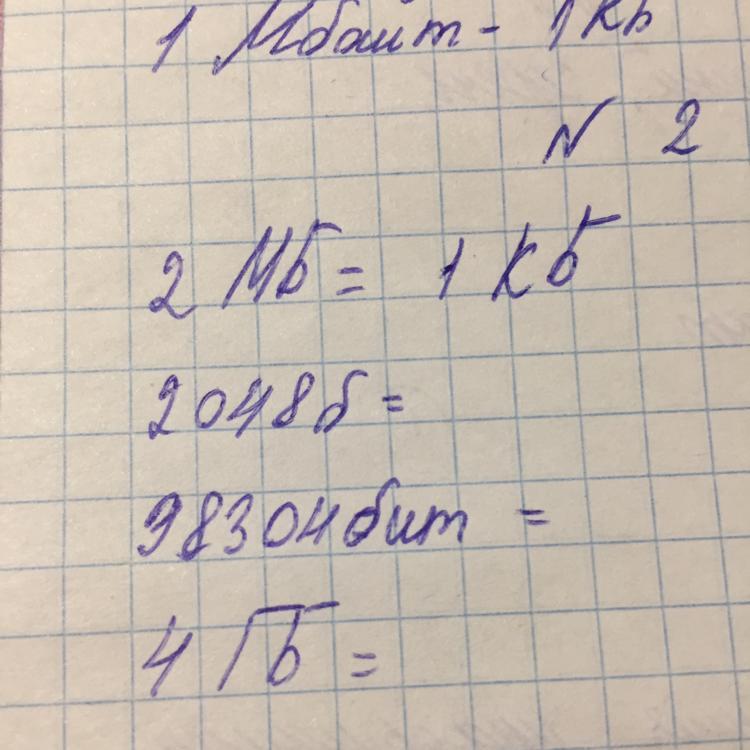 1 Мбайт - 1 Кб
N 2
2 Мб = 1 Кб
2048 б =
98304 бит =
4 Гб =